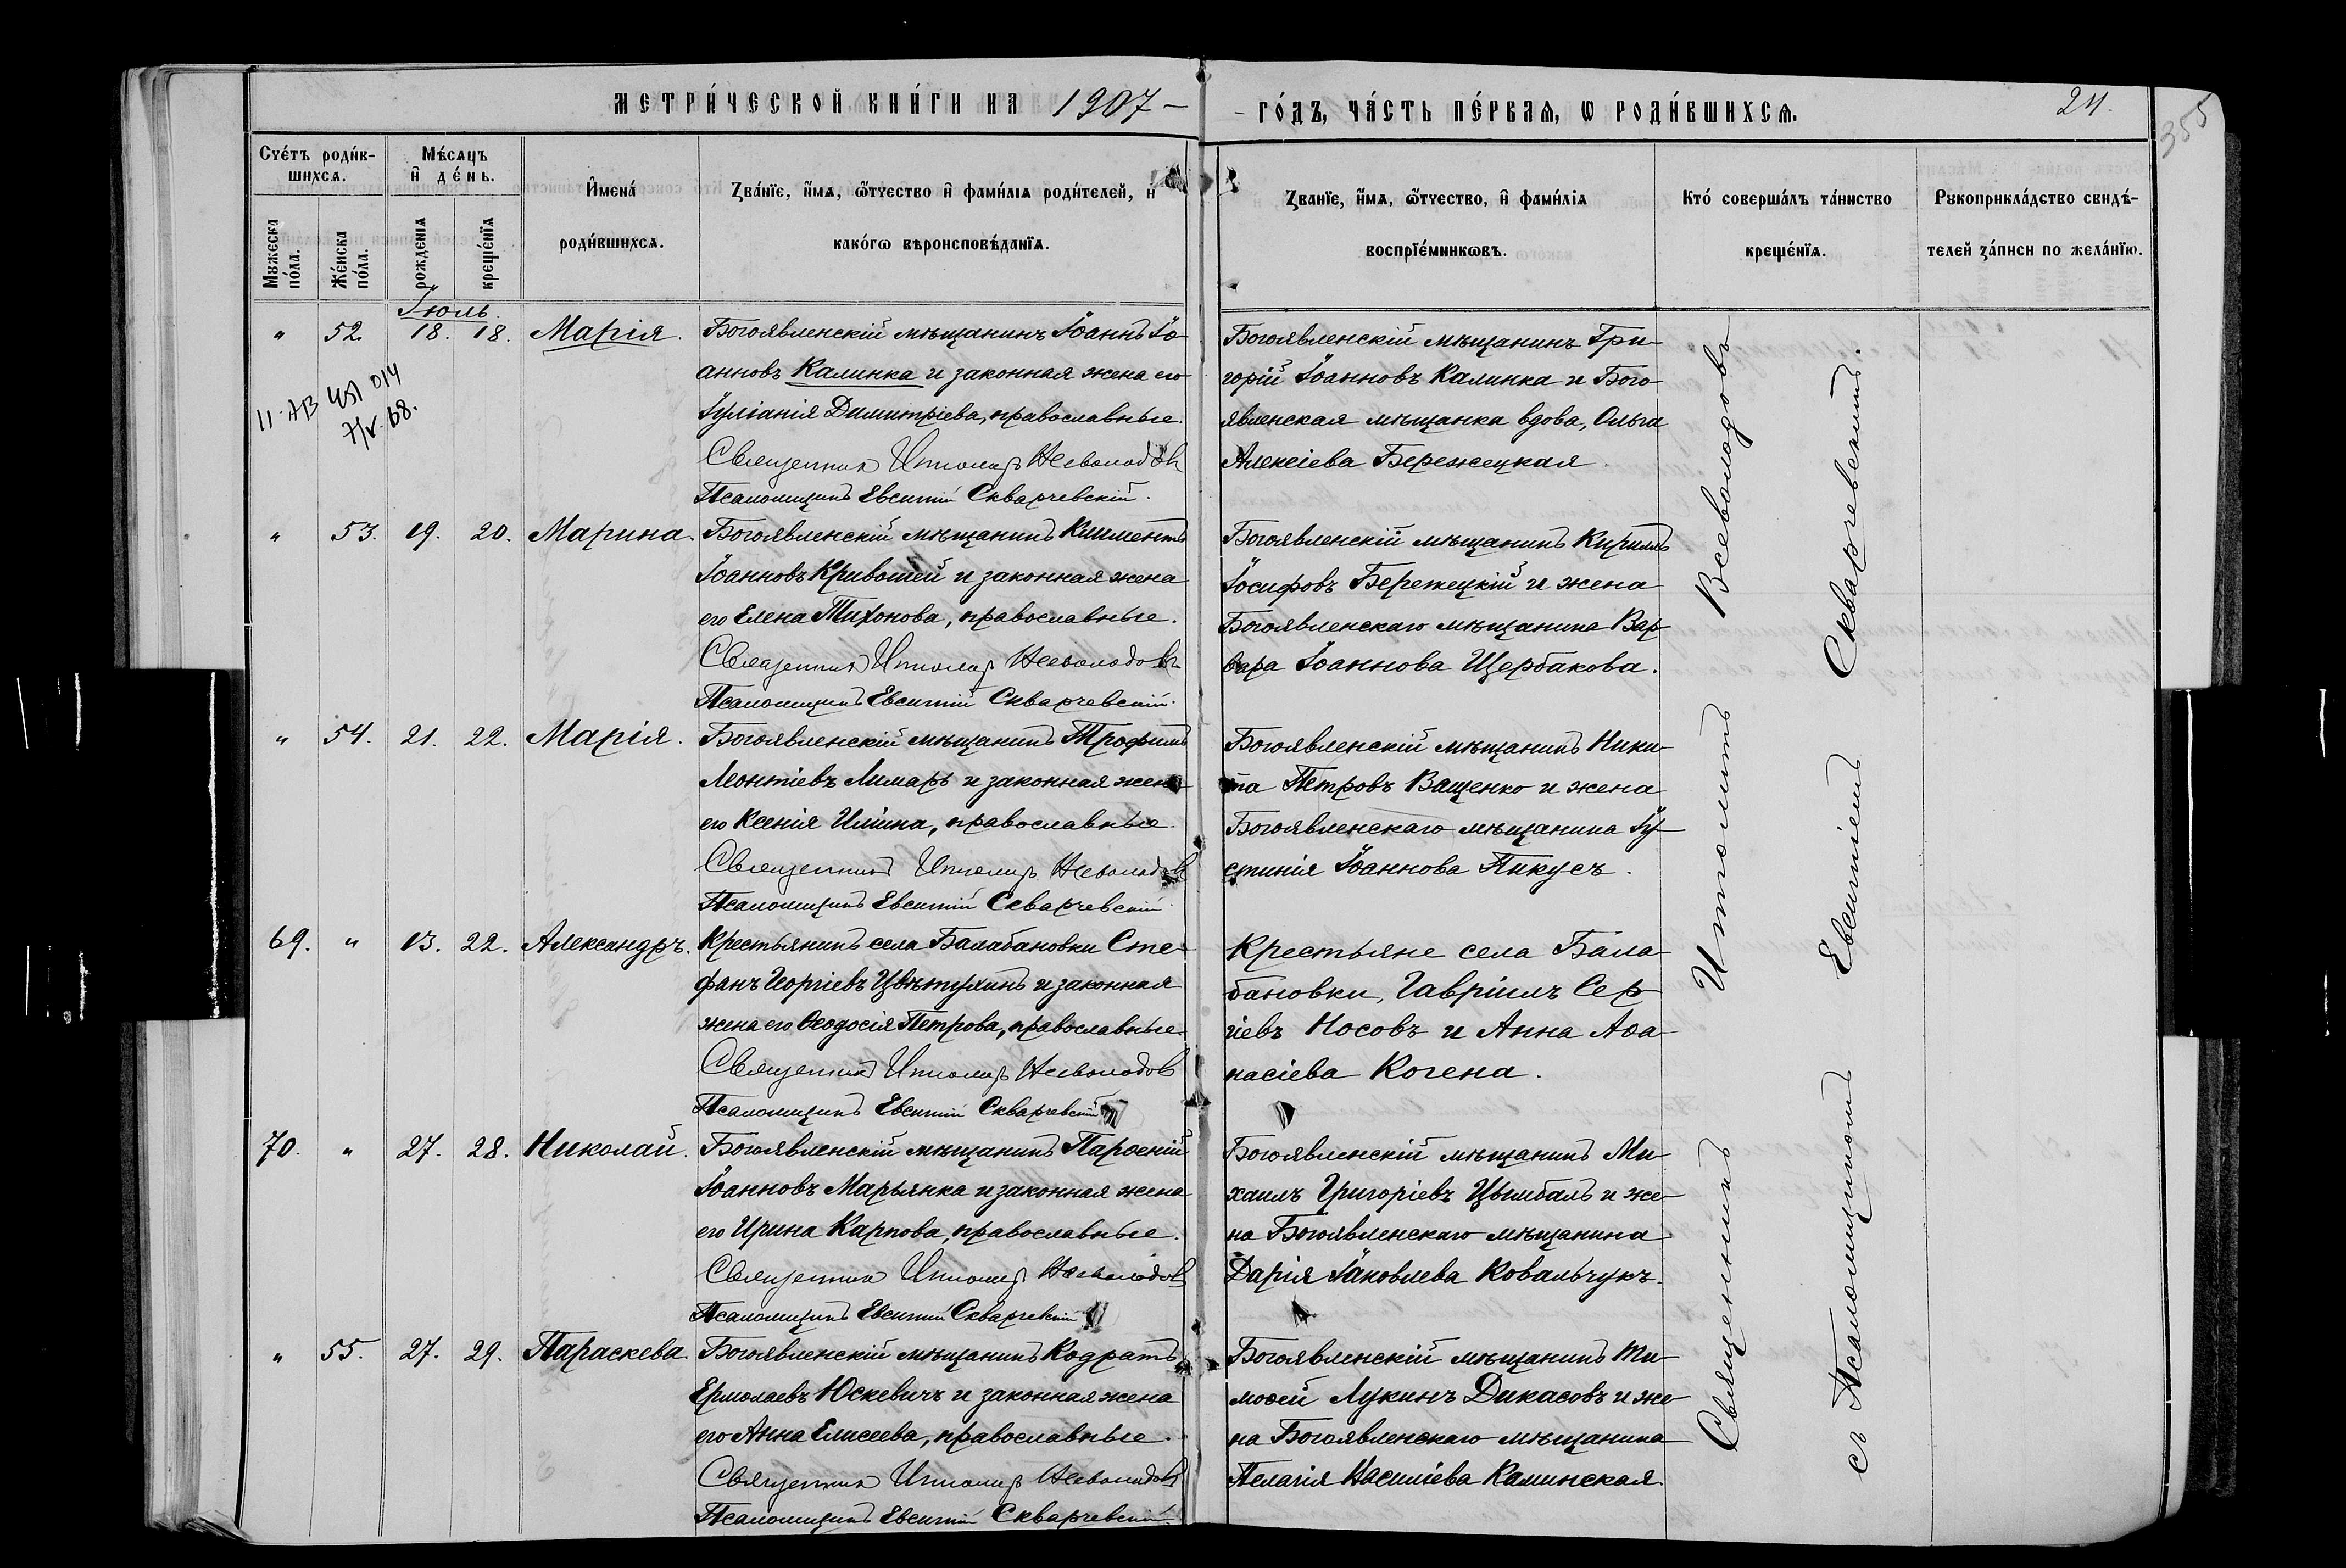 МЕТРИ́ЧЕСКОЙ КНИ́ГИ НА 1907 –
– ГО́ДЪ, ЧА́СТЬ ПЕ́РВАѦ, Ѡ РОДИ́ВШИХСѦ.
24.
355
Сче́тъ роди́в-
шихсѧ.
Мѣ́сѧцъ
и҆ де́нь.
И҆мена́
роди́вшихсѧ.
Зва́нїе, и҆́мѧ, ѻ҆́тчество и҆ фами́лїѧ роди́телей, и҆
како́гѡ вѣроисповѣ́данїѧ.
Зва́нїе, и҆́мѧ, ѻ҆́тчество, и҆ фами́лїѧ
воспрїе́мникѡвъ.
Кто́ соверша́лъ та́инство
креще́нїѧ.
Рꙋкоприкла́дство свидѣ́-
телей за́писи по жела́нїю.
Мꙋжеска
по́ла.
Же́нска
по́ла.
рожденїѧ
креще́нїѧ
Іюль.
" 52. 18. 18. Марія. Богоявленскій мѣщанинъ Іоаннъ Іо-
анновъ Калинка и законная жена его
Іуліанія Димитріева, православные.
Священникъ Ипполитъ Всеволодовъ
Псаломщикъ Евсигній Скварчевскій.
Богоявленскій мѣщанинъ Гри-
горій Іоанновъ Калинка и Бого-
явленская мѣщанка вдова, Ольга
Алексіева Бережецкая.
11-АВ 451014
68.
" 53. 19. 20. Марина. Богоявленскій мѣщанинъ Климентъ
Іоанновъ Кривошей и законная жена
его Елена Тихонова, православные.
Священникъ Ипполитъ Всеволодовъ
Псаломщикъ Евсигній Скварчевскій.
Богоявленскій мѣщанинъ Кириллъ
Іосифовъ Бережецкій и жена
Богоявленскаго мѣщанина Вар-
вара Іоаннова Щербакова.
" 54. 21. 22. Марія. Богоявленскій мѣщанинъ Трофимъ
Леонтіевъ Лимарь и законная жена
его Ксенія Иліина, православные.
Священникъ Ипполитъ Всеволодовъ
Псаломщикъ Евсигній Скварчевскій.
Богоявленскій мѣщанинъ Ники-
та Петровъ Ващенко и жена
Богоявленскаго мѣщанина Іу-
стинія Іоаннова Пикусъ.
69. " 13. 22. Александръ. Крестьянинъ села Балабановки Сте-
фанъ Георгіевъ Цвѣтухинъ и законная
жена его Ѳеодосія Петрова, православные.
Священникъ Ипполитъ Всеволодовъ
Псаломщикъ Евсигній Скварчевскій
Крестьяне села Бала-
бановки, Гавріилъ Сер-
гіевъ Носовъ и Анна Аѳа-
насіева Когена.
70. " 27. 28. Николай. Богоявленскій мѣщанинъ Парѳеній
Іоанновъ Марьянка и законная жена
его Ирина Карпова, православные.
Священникъ Ипполитъ Всеволодовъ
Псаломщикъ Евсигній Скварчевскій
Богоявленскій мѣщанинъ Ми-
хаилъ Григоріевъ Цымбалъ и же-
на Богоявленскаго мѣщанина
Дарія Іаковлева Ковальчукъ.
" 55. 27. 29. Параскева. Богоявленскій мѣщанинъ Кодратъ
Ермолаевъ Юскевичъ и законная жена
его Анна Елисеева, православные.
Священникъ Ипполитъ Всеволодовъ
Псаломщикъ Евсигній Скварчевскій.
Богоявленскій мѣщанинъ Ти-
моѳей Лукинъ Дикасовъ и же-
на Богоявленскаго мѣщанина
Пелагія Василіева Каминская.
Священникъ Ипполитъ Всеволодовъ
съ Псаломщикомъ Евсигніемъ Скварчевскимъ.